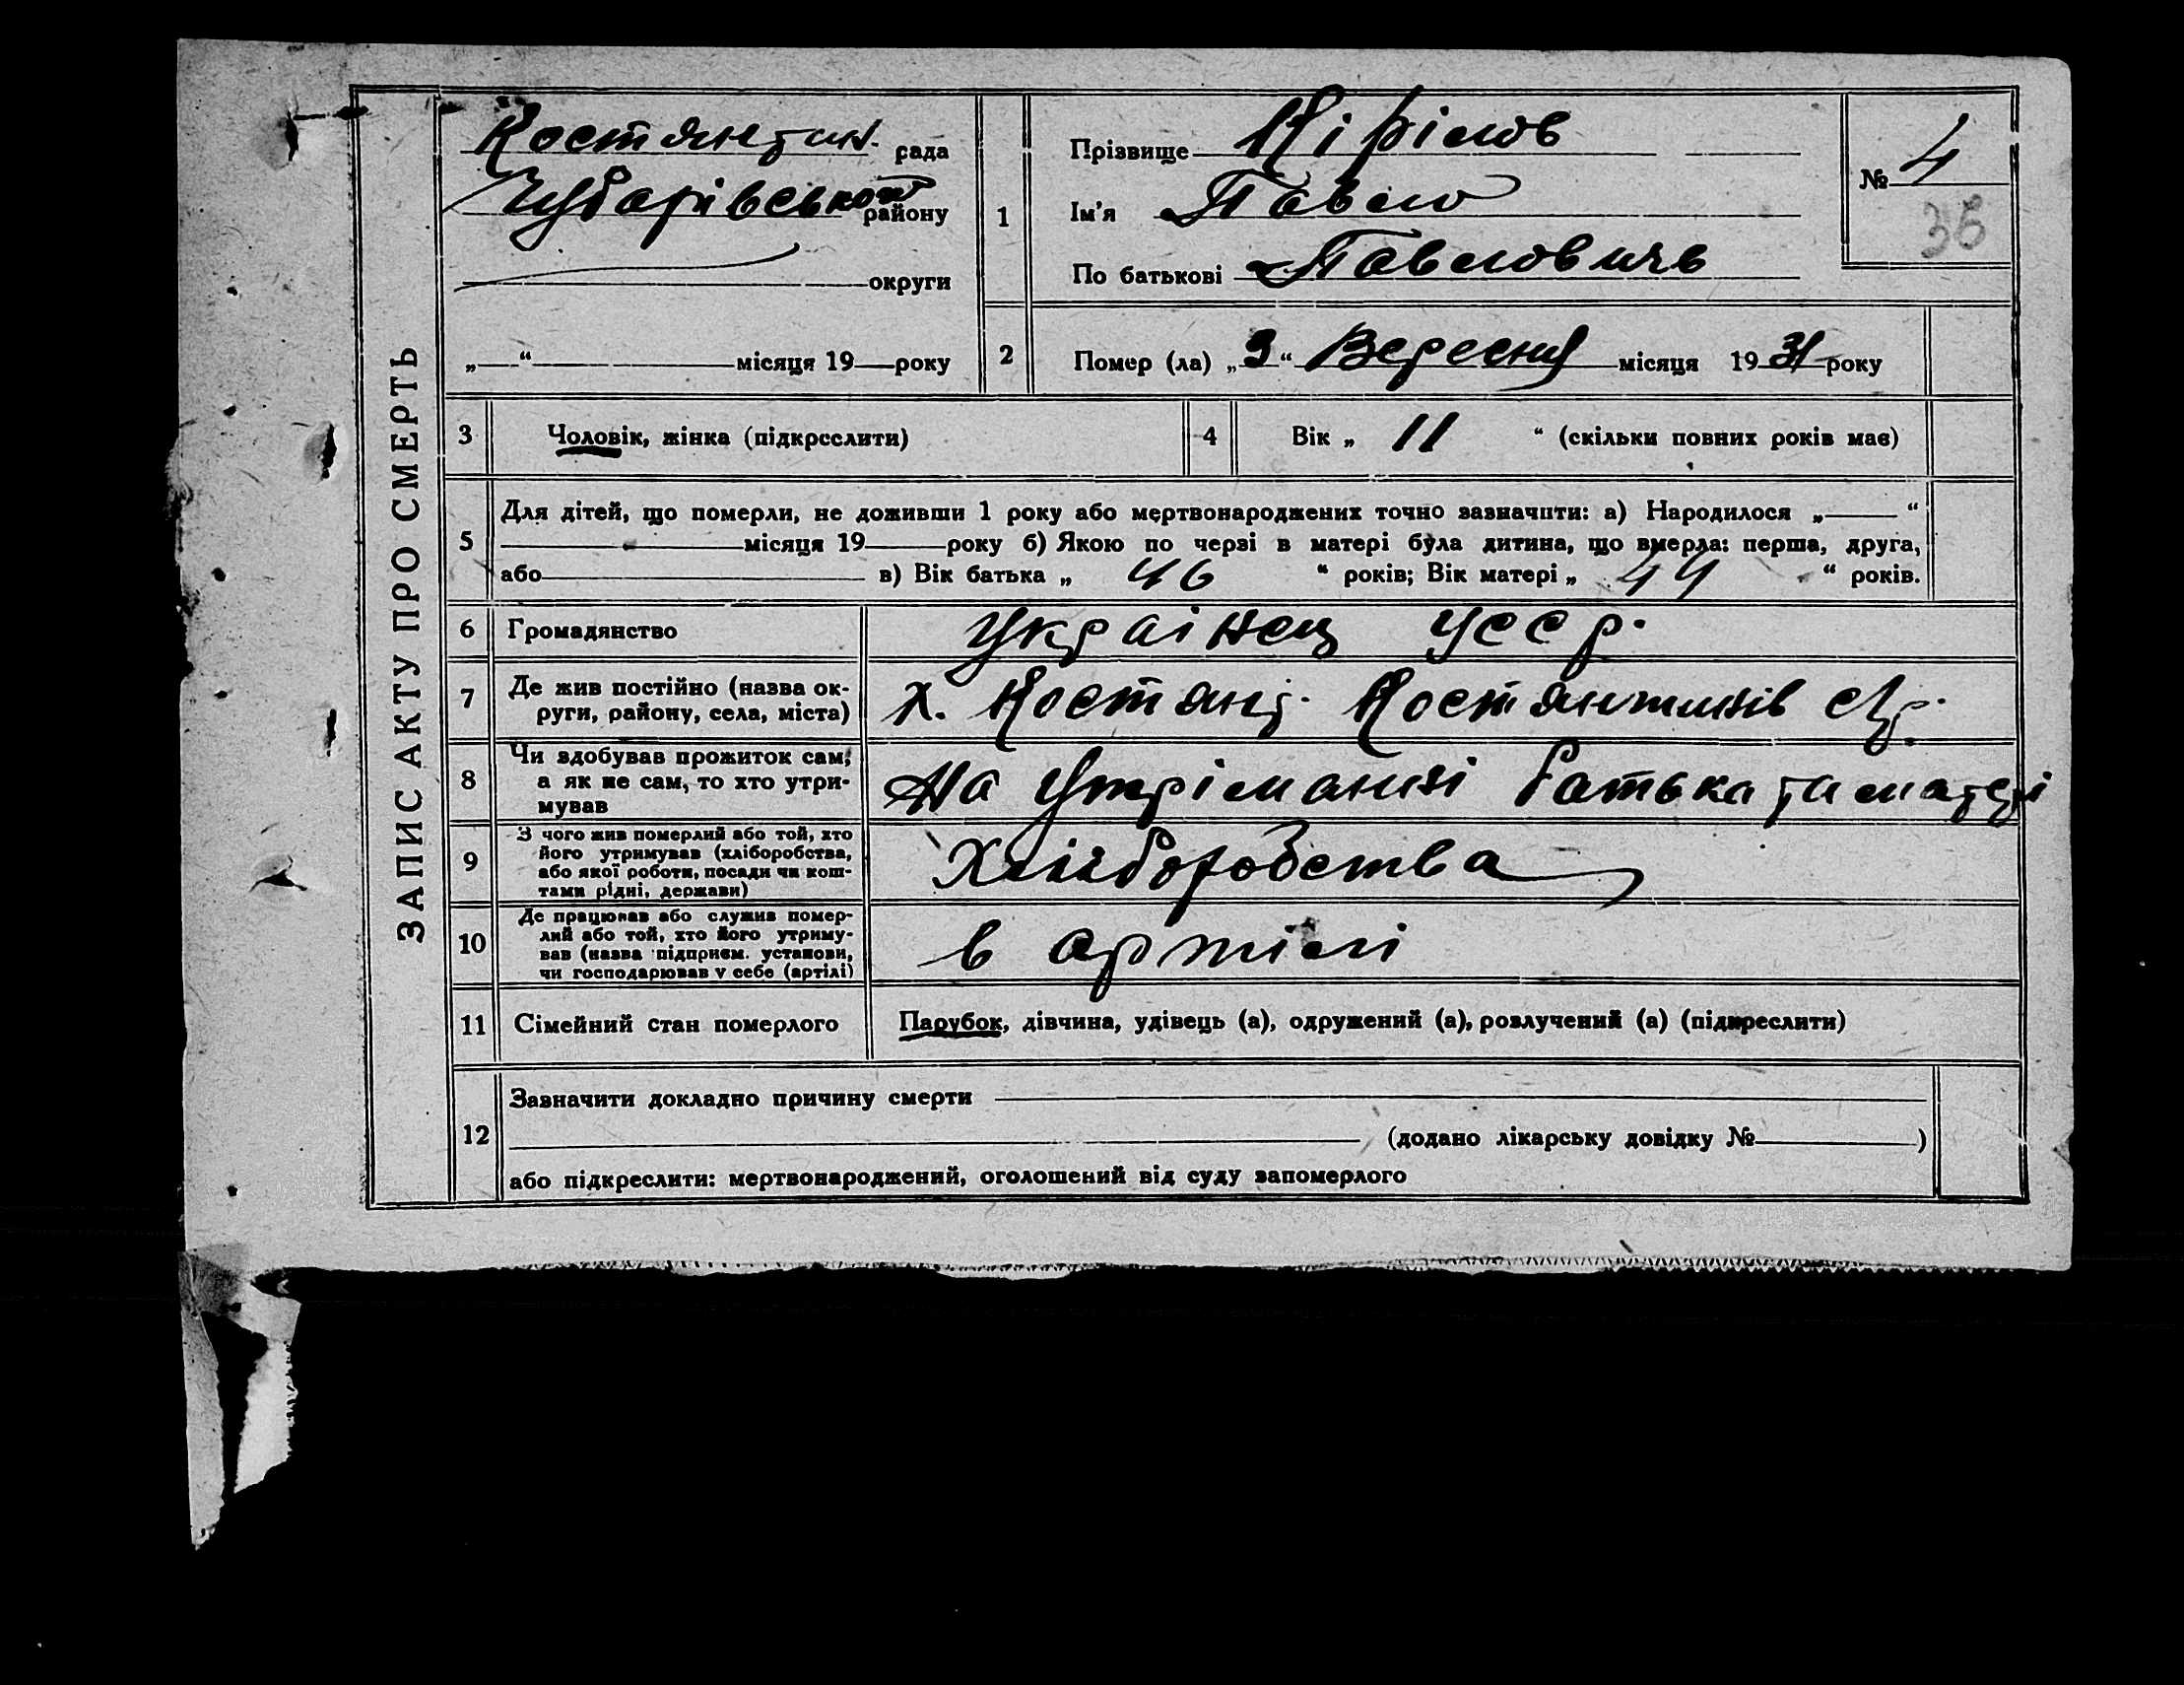 ЗАПИС АКТУ ПРО СМЕРТЬ
Костянтин. рада
Чубарівської району
округи
„ “ місяця 19 року
1
Прізвище Кірілов
Ім'я Павло
По батькові Павловичь
№ 4
36
2
Помер (ла) „ 3 “ Вересня місяця 19 31 року
3
Чоловік, жінка (підкреслити)
4
Вік „ 11 “ (скільки повних років має)
5
Для дітей, що померли, не доживши 1 року або мертвонароджених точно зазначити: а) Народилося „ “
місяця 19 року б) Якою по черзі в матері була дитина, що вмерла: перша, друга,
або в) Вік батька „ 46 “ років; Вік матері „ 44 “ років.
6
Громадянство
Українец УССР.
7
Де жив постійно (назва ок-
руги, району, села, міста)
х. Костянт. Костянтинів
8
Чи здобував прожиток сам,
а як не сам, то хто утри-
мував
На Утріманні батька та матері
9
З чого жив померлий або той, хто
його утримував (хліборобства,
або якої роботи, посади чи кош-
тами рідні, держави)
Хліборобства
10
Де працював або служив помер-
лий або той, хто його утриму-
вав (назва підприєм. установи,
чи господарював у себе (артілі)
в артілі
11
Сімейний стан померлого
Парубок, дівчина, удівець (а), одружений (а), розлучений (а) (підкреслити)
12
Зазначити докладно причину смерти
(додано лікарську довідку № )
або підкреслити: мертвонароджений, оголошений від суду запомерлого